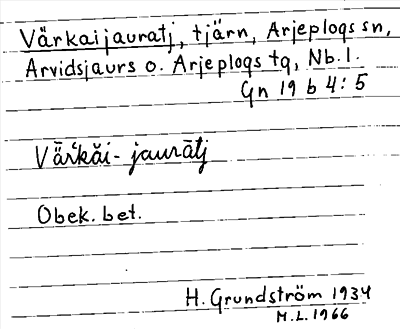 Värkaijauratj, tjärn, Arjeplogs sn,
Arvidsjaurs o. Arjeplogs tg, Nb. l.
Gn 19 b 4:5
Vā̈rʻkăi- jaurātj
Obek. bet.
H. Grundström 1934
M.L. 1966